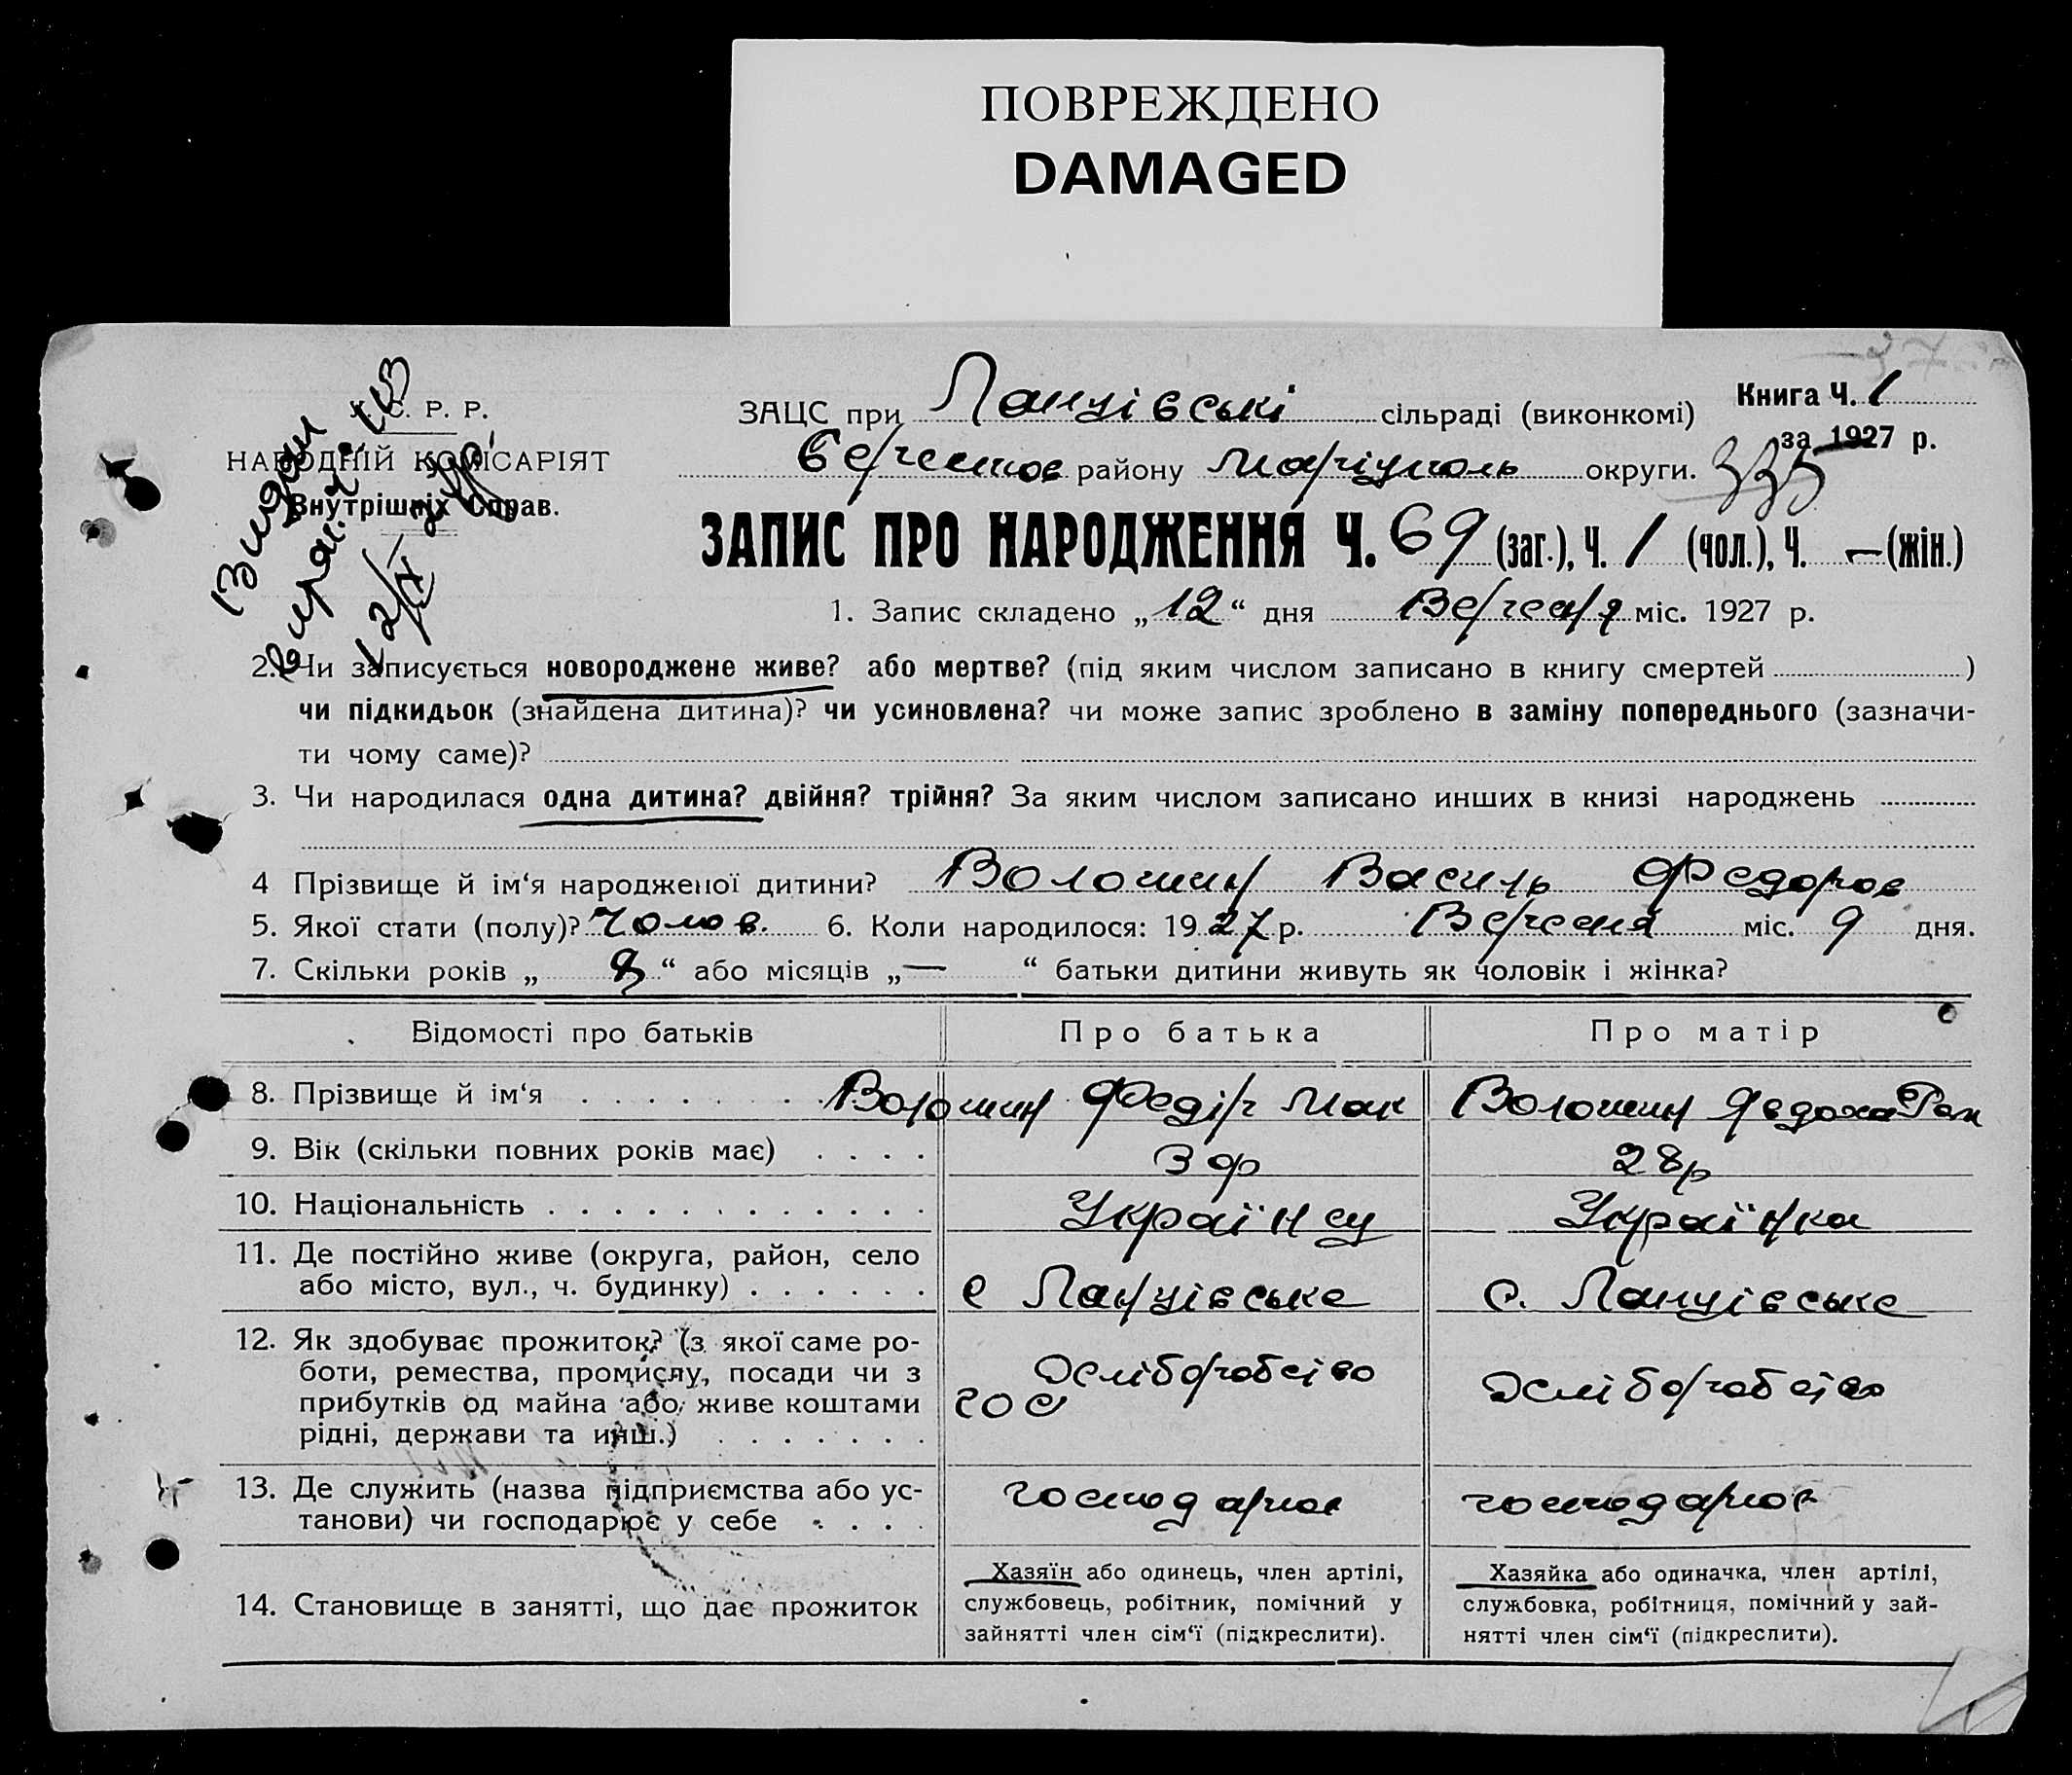 ПОВРЕЖДЕНО
DAMAGED
У. С. Р. Р.
НАРОДНІЙ КОМІСАРІЯТ
Внутрішніх Справ.
Видан
ЗАЦС при Ланцівські сільраді (виконкомі)
Книга Ч. 1
за 1927 р.
району Маріуполь округи.
335
ЗАПИС ПРО НАРОДЖЕННЯ Ч. 69 (заг.), Ч. 1 (чол.), Ч. — (жін.)
1. Запис складено „12“ дня Версня міс. 1927 р.
2. Чи записується новороджене живе? або мертве? (під яким числом записано в книгу смертей )
чи підкидьок (знайдена дитина)? чи усиновлена? чи може запис зроблено в заміну попереднього (зазначи-
ти чому саме)?
3. Чи народилася одна дитина? двійня? трійня? За яким числом записано инших в книзі народжень
4 Прізвище й ім‘я народженої дитини? Волошин Василь Федоров
5. Якої стати (полу)? Чолов. 6. Коли народилося: 1927 р. Версеня міс. 9 дня.
7. Скільки років „8“ або місяців „—“ батьки дитини живуть як чоловік і жінка?
Відомості про батьків Про батька Про матір
8. Прізвище й ім‘я Волошин Федір Мак Волошин Явдоха Ром
9. Вік (скільки повних років має) 28р
10. Національність Українец Українка
11. Де постійно живе (округа, район, село
або місто, вул., ч. будинку) с Ланцівське с. Ланцівське
12. Як здобуває прожиток? (з якої саме ро-
боти, ремества, промислу, посади чи з
прибутків од майна або живе коштами
рідні, держави та инш.) хліборобство хліборобство
13. Де служить (назва підприємства або ус-
танови) чи господарює у себе господарює господарює
14. Становище в занятті, що дає прожиток
Хазяїн або одинець, член артілі,
службовець, робітник, помічний у
зайнятті член сім‘ї (підкреслити).
Хазяйка або одиначка, член артілі,
службовка, робітниця, помічний у зай-
нятті член сім‘ї (підкреслити).